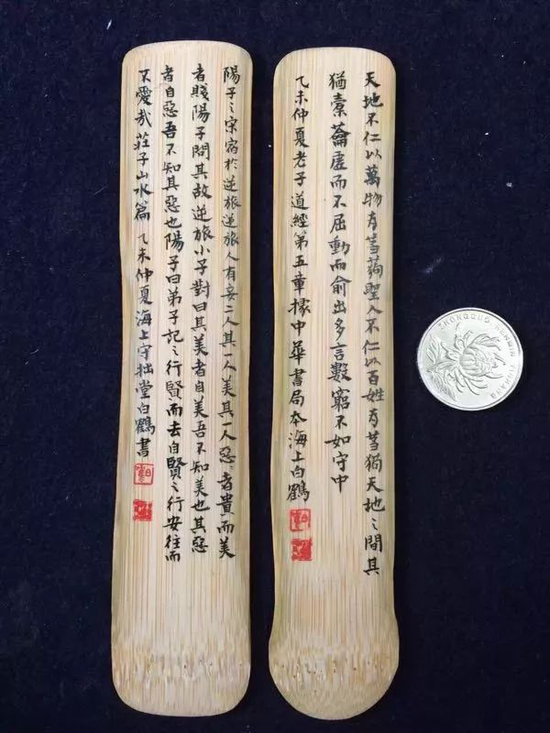 天地不仁以萬物為芻狗聖人不仁以百姓為芻狗天地之間其
猶橐籥虛而不屈動而俞出多言數窮不如守中
乙未仲夏老子道經第五章據中華書局本海上白鶴
陽子之宋宿於逆旅逆旅人有妾二人其一人美其一人惡〻者貴而美
者賤陽子問其故逆旅小子對曰其美者自美吾不知美也其惡
者自惡吾不知其惡也陽子曰弟子記之行賢而去自賢之行安往而
不愛哉莊子山水篇乙未仲夏海上守拙堂白鶴書
ZHONGGUO RENMIN YINHANG